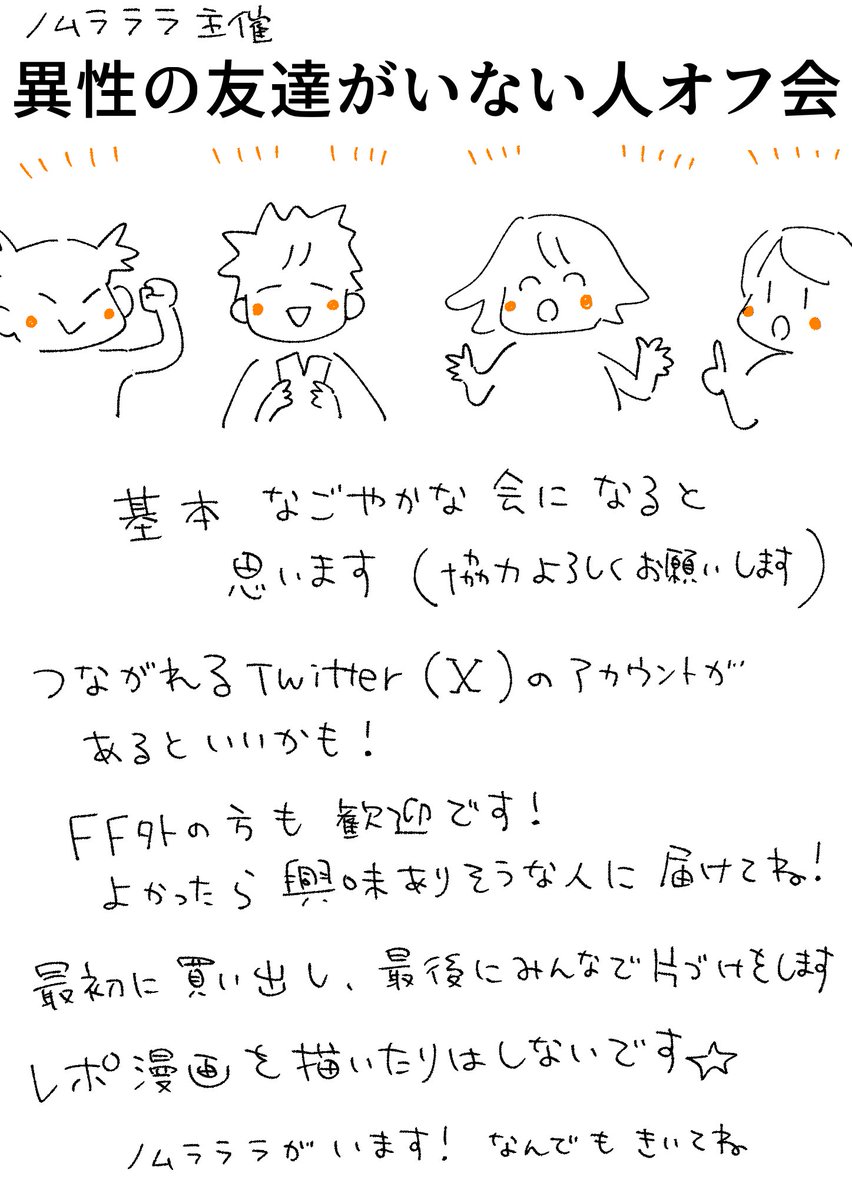 ノムラララ 主催
異性の友達がいない人オフ会
基本 なごやかな 会に なると
思います (協力よろしくお願いします)
つながれるTwitter(X)のアカウントが
あるといいかも!
FF外の方も 歓迎です!
よかったら 興味ありそうな人に 届けてね!
最初に 買い出し、最後にみんなで片づけをします
レポ漫画を描いたりはしないです☆
ノムラララがいます! なんでも きいてね